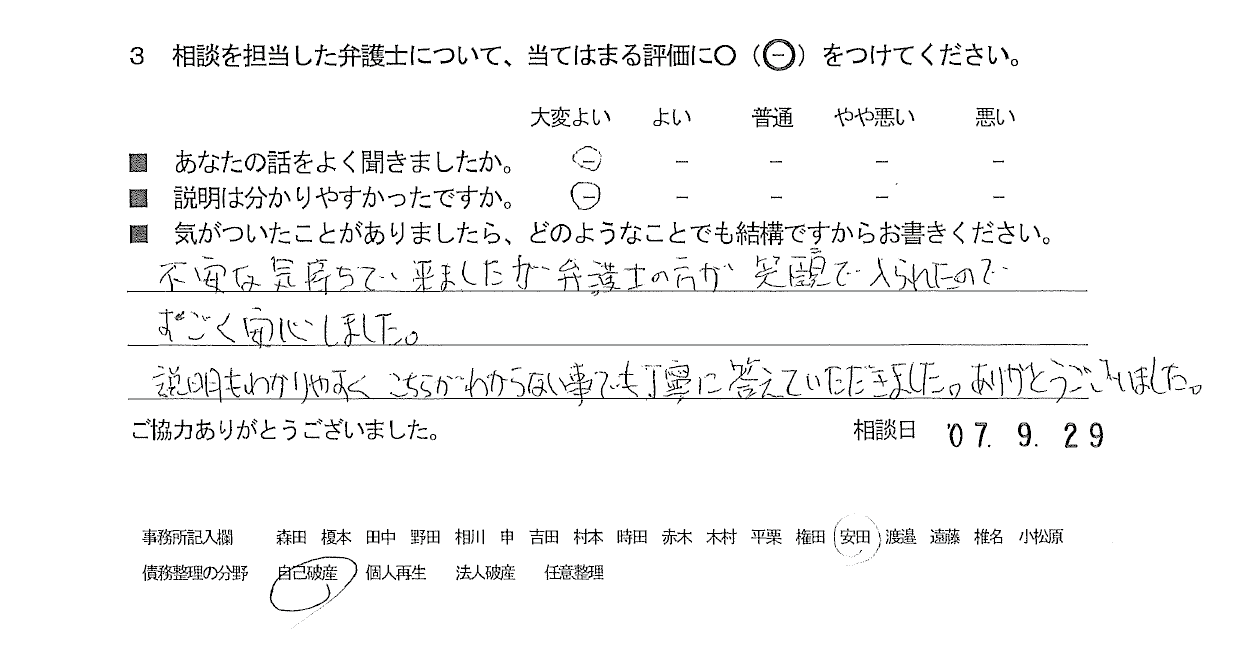 3 相談を担当した弁護士について、当てはまる評価に○（㊀）をつけてください。
大変よい よい 普通 やや悪い 悪い
■ あなたの話をよく聞きましたか。 － － － － －
■ 説明は分かりやすかったですか。 － － － － －
■ 気がついたことがありましたら、どのようなことでも結構ですからお書きください。
不安な気持ちで来ましたが弁護士の方が笑顔で入られたので
すごく安心しました。
説明もわかりやすく こちらがわからない事でも丁寧に答えていただきました。ありがとうございました。
ご協力ありがとうございました。 相談日 '07. 9. 29
事務所記入欄 森田 榎本 田中 野田 相川 申 吉田 村本 時田 赤木 木村 平栗 権田 安田 渡邉 遠藤 椎名 小松原
債務整理の分野 自己破産 個人再生 法人破産 任意整理